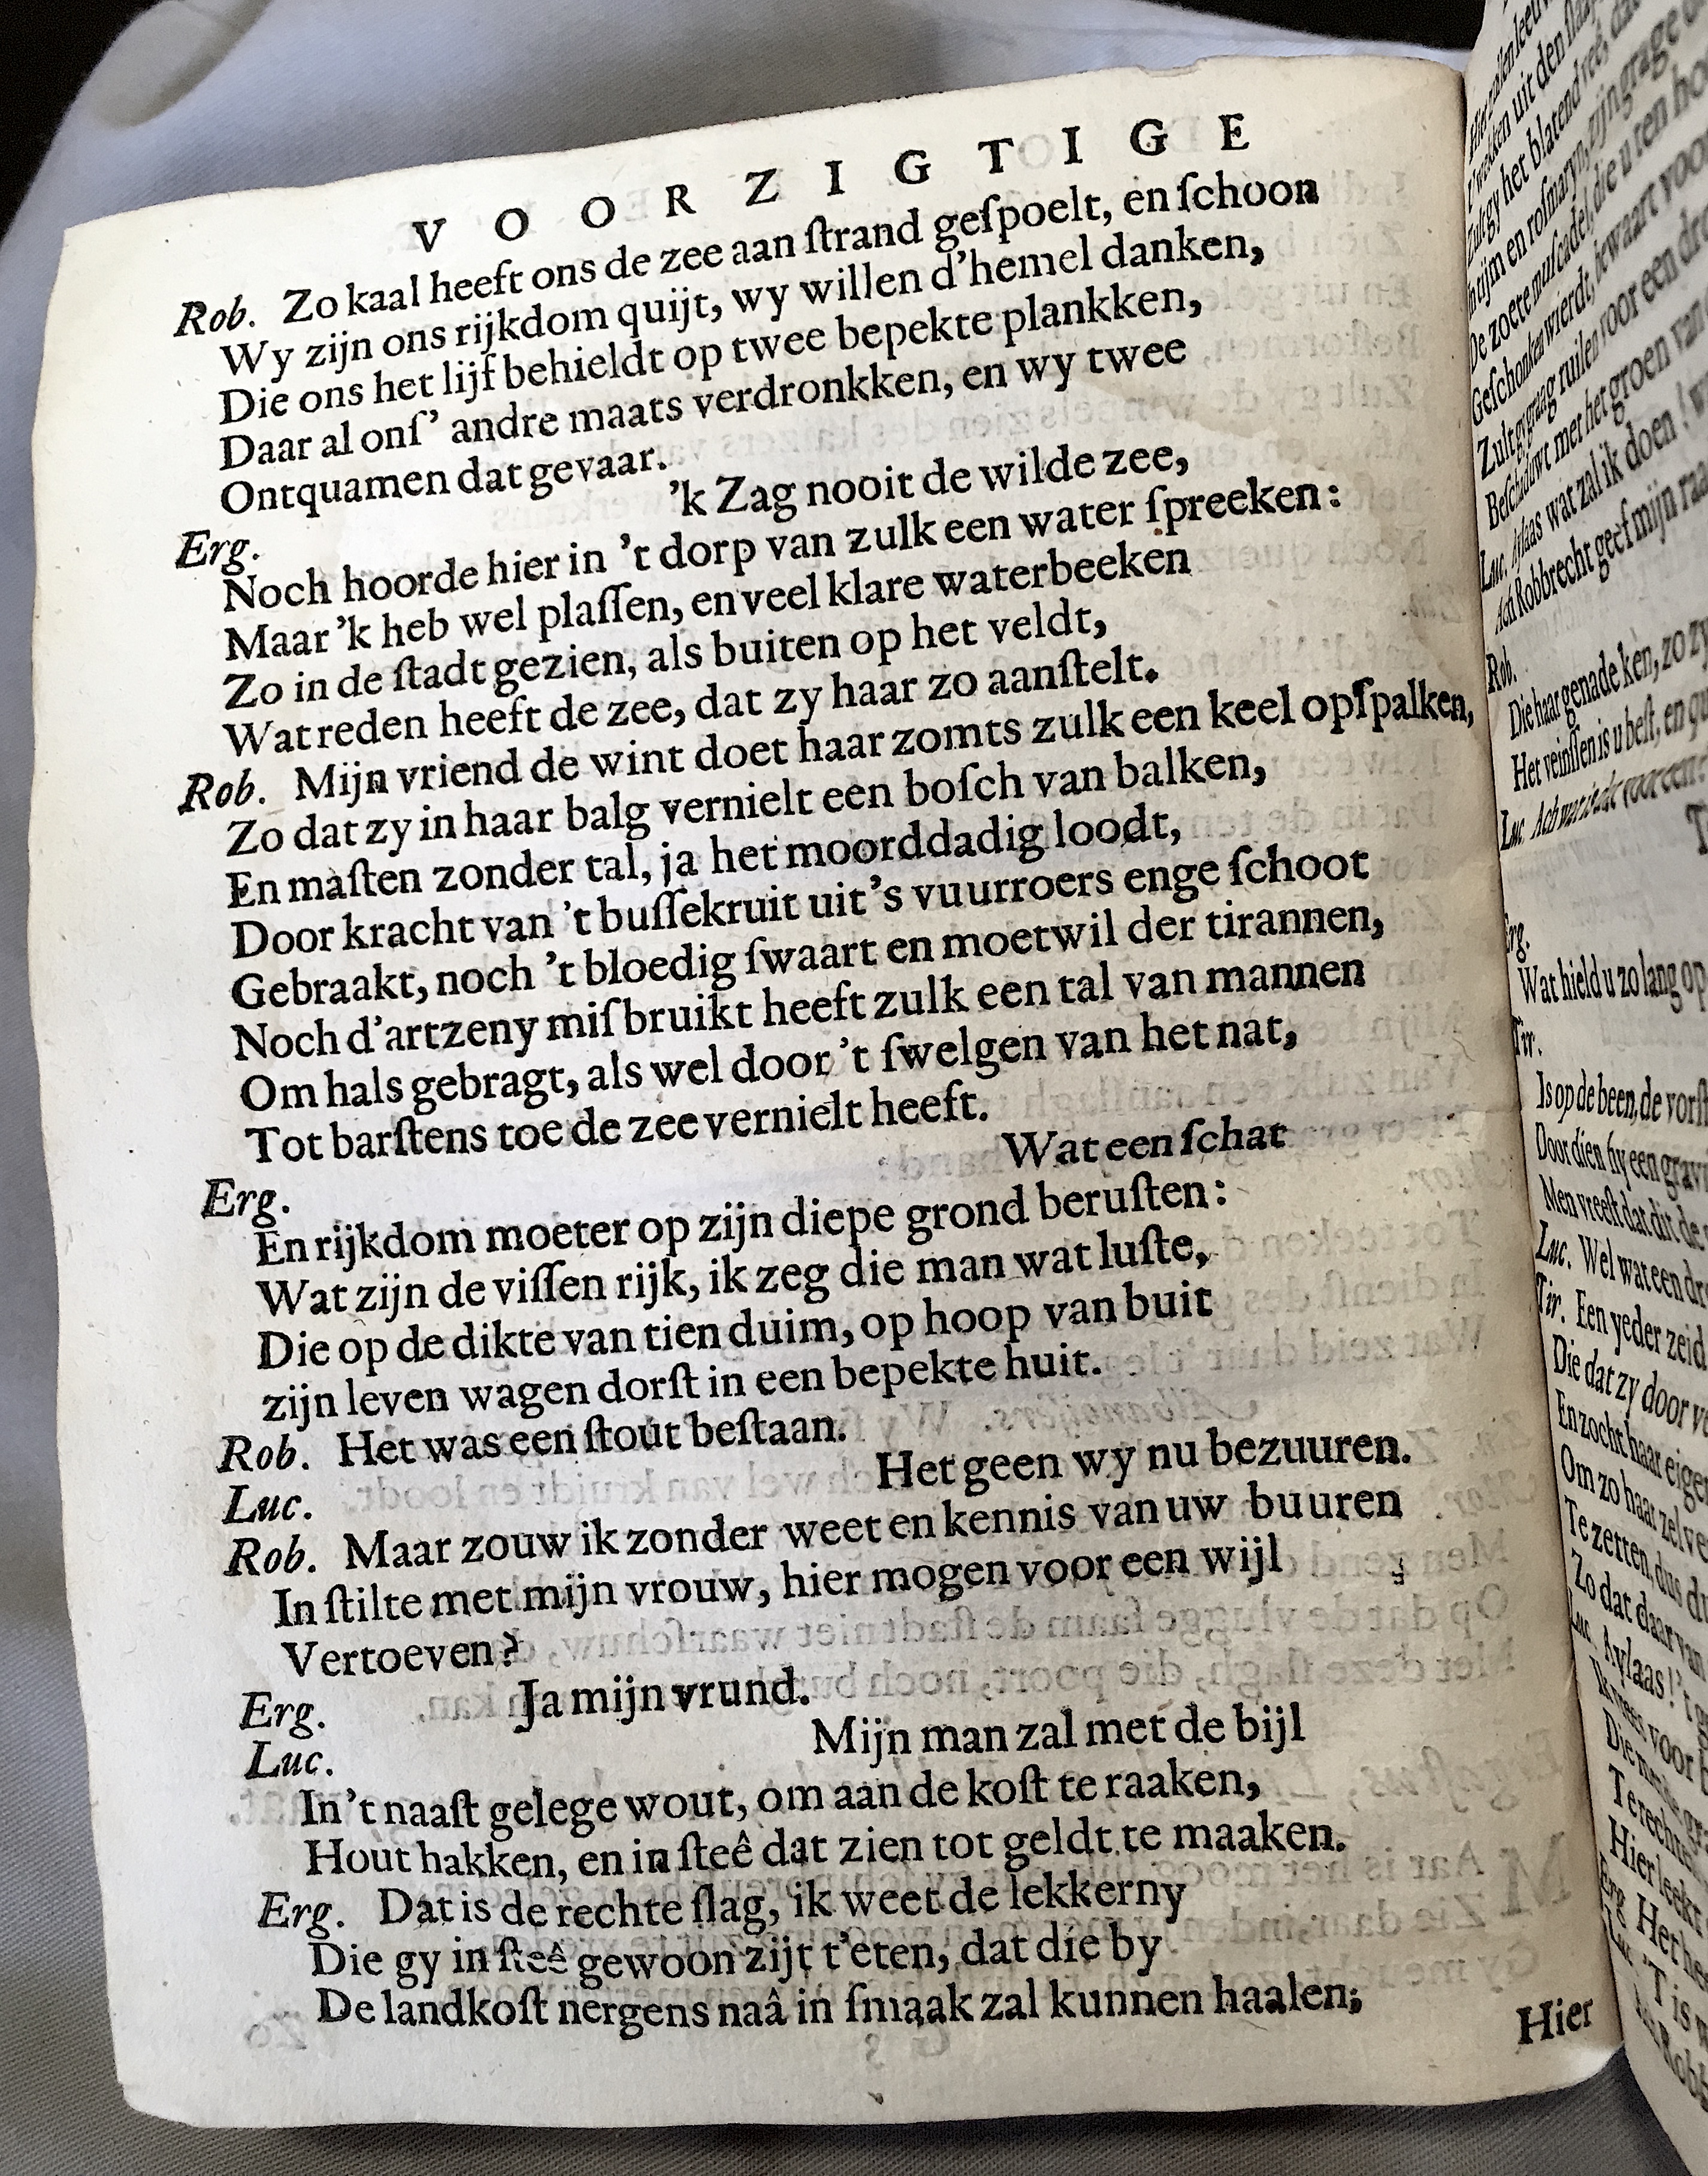 VOORZIGTIGE
Rob. Zo kaal heeft ons de zee aan ſtrand geſpoelt, en ſchoon
Wy zijn ons rijkdom quijt, wy willen d'hemel danken,
Die ons het lijf behieldt op twee bepekte plankken,
Daar al onſ' andre maats verdronkken, en wy twee
Ontquamen dat gevaar.
Erg. 'k Zag nooit de wilde zee,
Noch hoorde hier in 't dorp van zulk een water ſpreeken:
Maar 'k heb wel plaſſen, en veel klare waterbeeken
Zo in de ſtadt gezien, als buiten op het veldt,
Wat reden heeft de zee, dat zy haar zo aanſtelt.
Rob. Mijn vriend de wint doet haar zomts zulk een keel opſpalken,
Zo dat zy in haar balg vernielt een boſch van balken,
En maſten zonder tal, ja het moorddadig loodt,
Door kracht van 't buſſekruit uit 's vuurroers enge ſchoot
Gebraakt, noch 't bloedig ſwaart en moetwil der tirannen,
Noch d'artzeny miſbruikt heeft zulk een tal van mannen
Om hals gebragt, als wel door 't ſwelgen van het nat,
Tot barſtens toe de zee vernielt heeft.
Erg. Wat een ſchat
En rijkdom moeter op zijn diepe grond beruſten:
Wat zijn de viſſen rijk, ik zeg die man wat luſte,
Die op de dikte van tien duim, op hoop van buit
zijn leven wagen dorſt in een bepekte huit.
Rob. Het was een ſtout beſtaan.
Luc. Het geen wy nu bezuuren.
Rob. Maar zouw ik zonder weet en kennis van uw buuren
In ſtilte met mijn vrouw, hier mogen voor een wijl
Vertoeven?
Erg. Ja mijn vrund.
Luc. Mijn man zal met de bijl
In 't naaſt gelege wout, om aan de koſt te raaken,
Hout hakken, en in ſteê dat zien tot geldt te maaken.
Erg. Dat is de rechte ſlag, ik weet de lekkerny
Die gy in ſteê gewoon zijt t'eten, dat die by
De landkoſt nergens naâ in ſmaak zal kunnen haalen;
Hier
Luc. Aylaas wat zal ik doen!
Ach Robbrecht geef mijn raa
Rob.
Die haar genade ken, zo zy
Het veinſſen is u beſt, en
Erg.
Wat hield u zo lang op
Tir.
Is op de been, de vorſt
Door dien hy een
Men vreeſt dat dit de
Luc. Wel wat een
Tir. Een yeder zeid
Die dat zy door
En zocht haar eigen
Om zo haar zelve
Te zetten, dus
Zo dat daar van
Luc. Aylaas! 't